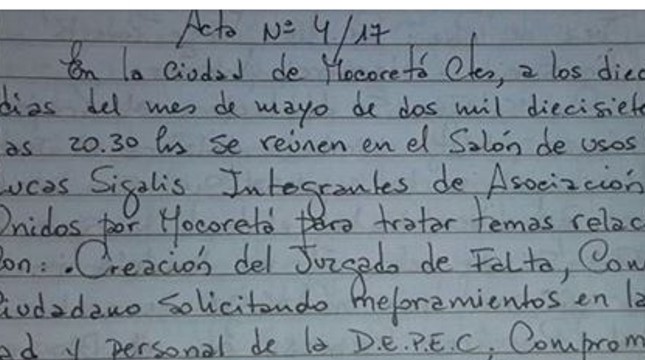 Acta Nº 4/17
En la Ciudad de Mocoretá Ctes, a los diec
dias del mes de mayo de dos mil diecisiete
as 20.30 hs se reúnen en el Salón de usos
ucas Sigalis Integrantes de Asociación
Unidos por Mocoretá para tratar temas relac
on: . Creación del Juzgado de Falta, Con
iudadano solicitando mejoramientos en la
ad y personal de la D.E.P.E.C. Comprom